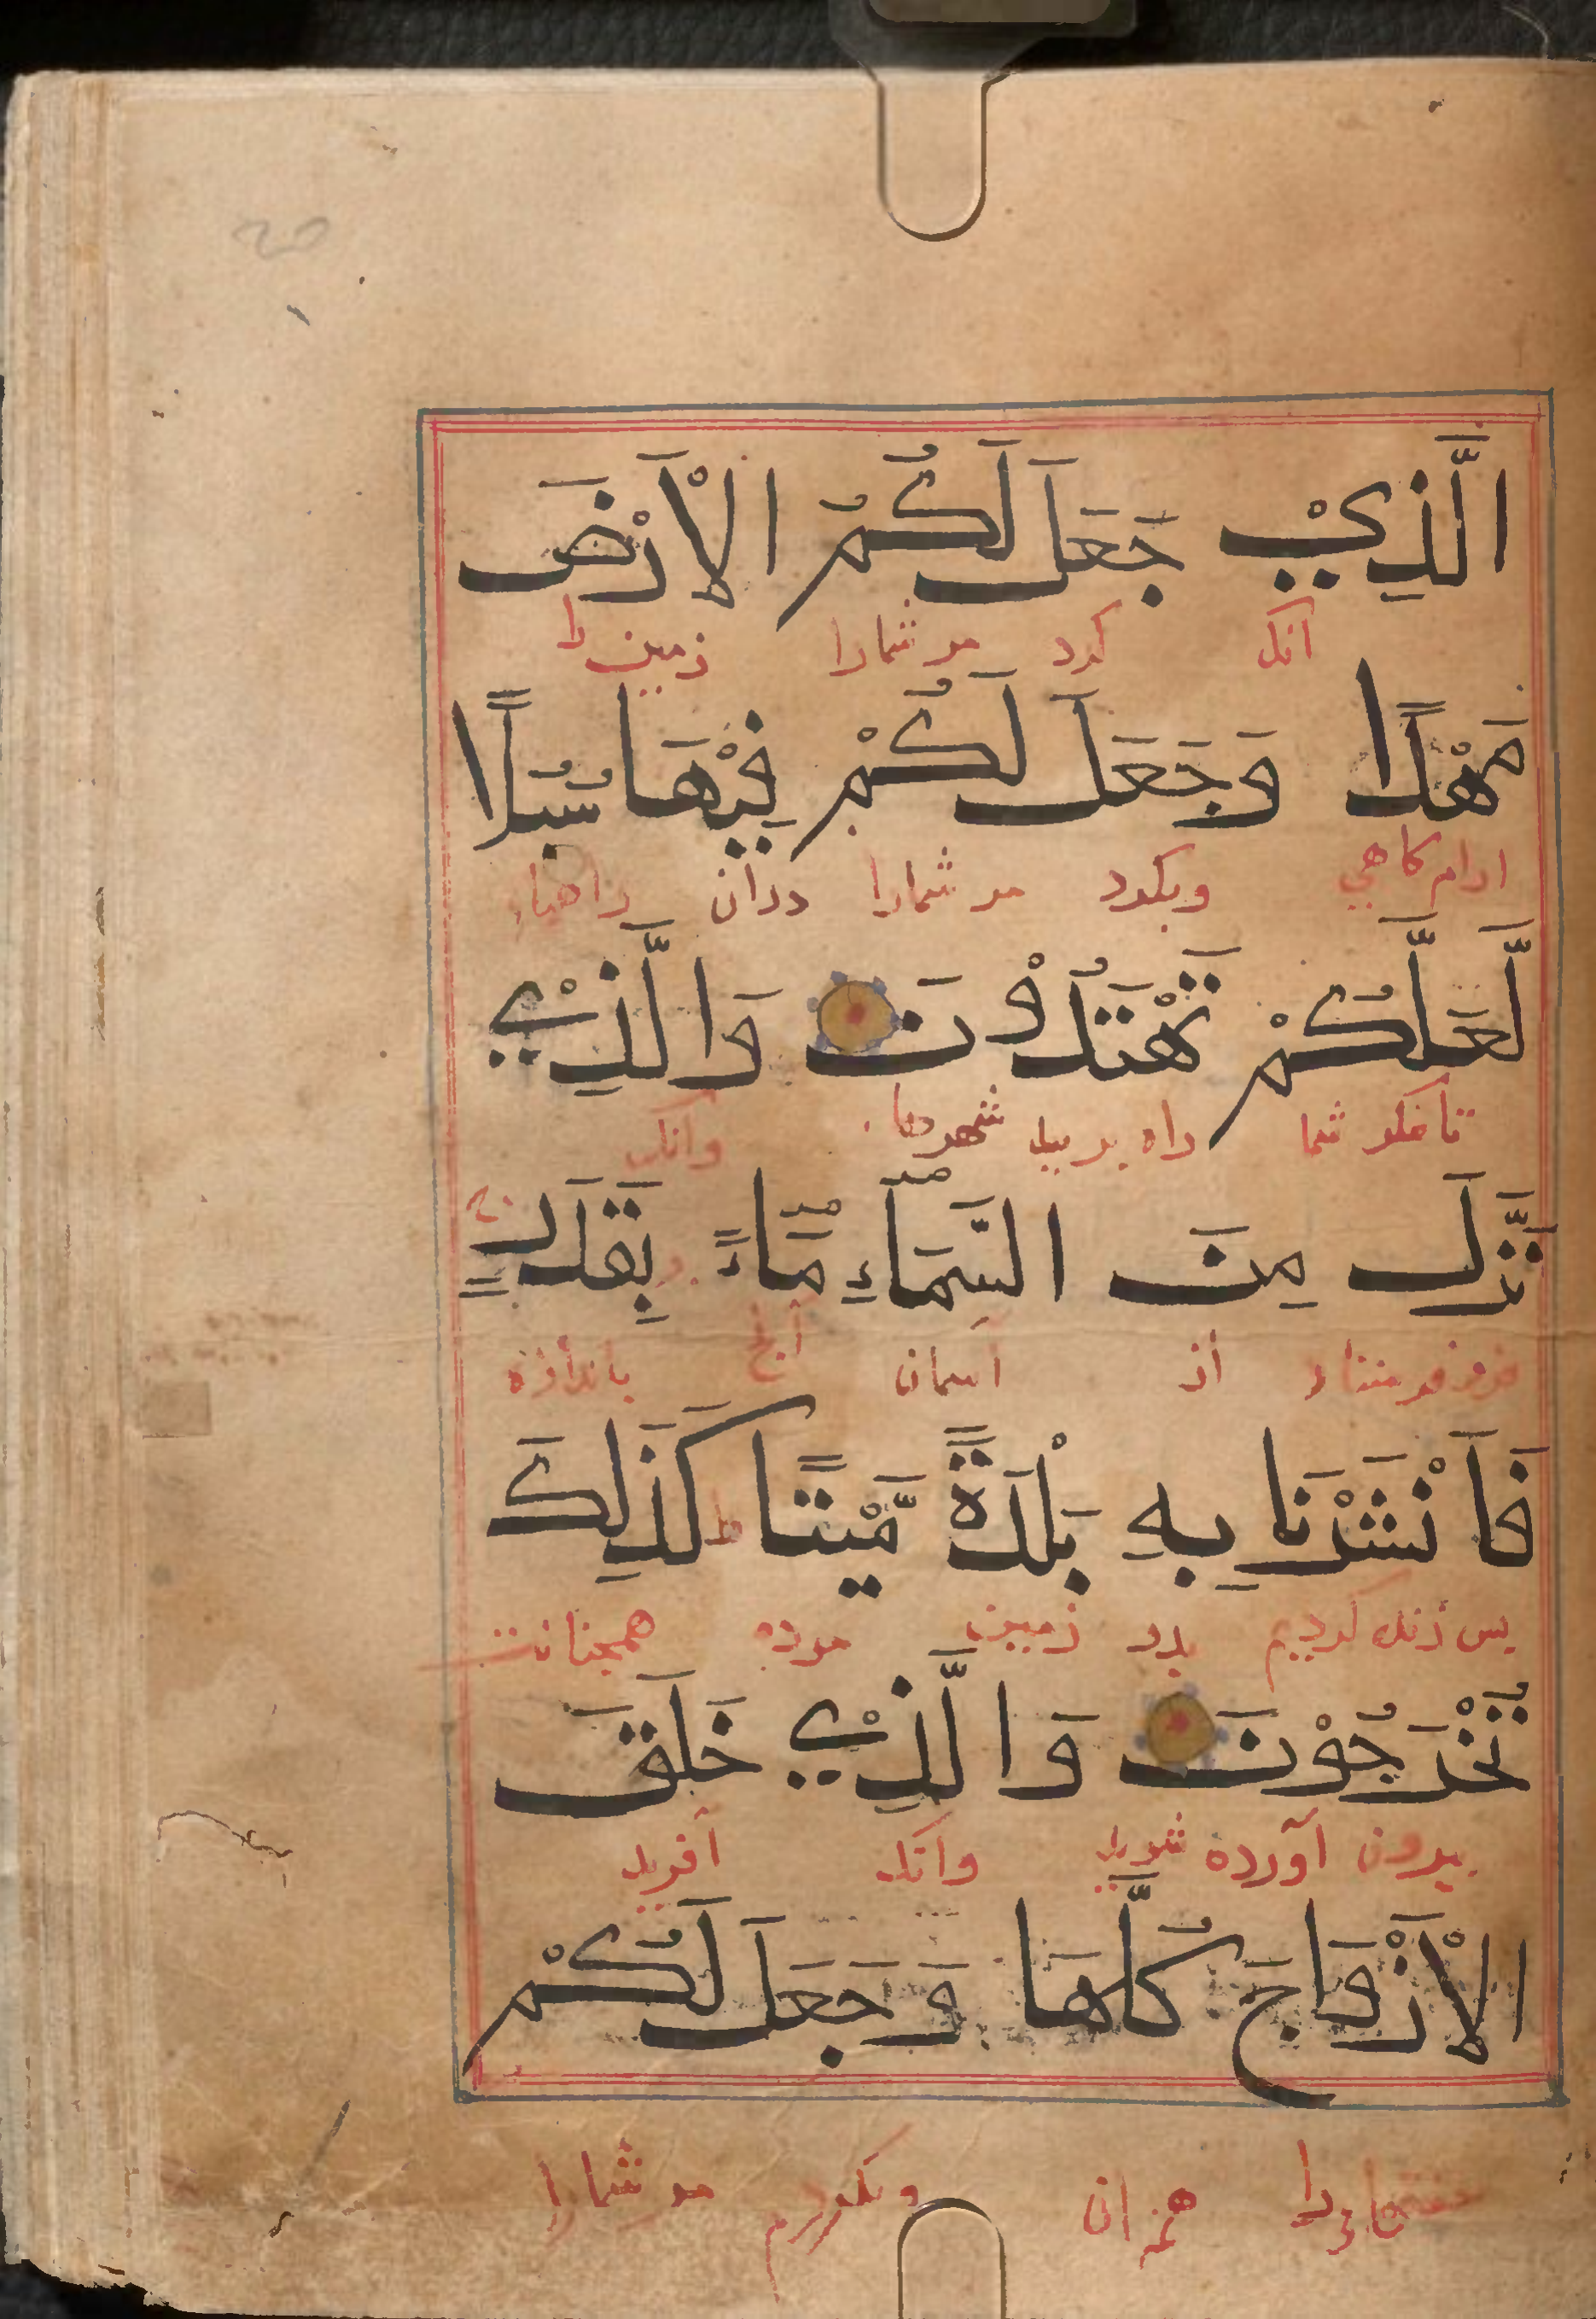 الَّذِيْ جَعَلَ لَكُمُ الْاَرْضَ
انک کرد مر شمارا زمین را
مَهْدًا وَجَعَلَ لَكُمْ فِيْهَا سُبُلًا
ارام کاهي وبکرد مر شمارا دران راههاء
لَّعَلَّكُمْ تَهْتَدُوْنَ وَالَّذِيْ
تا مکر شما راه برید شهرها وانک
نَزَّلَ مِنَ السَّمَآءِ مَآءً بِقَدَرٍ
فروفرستاد از اسمان باندازه
فَاَنْشَرْنَا بِهِ بَلْدَةً مَّيْتًا كَذَلِكَ
بس زنده کردیم بدو زمین مرده همچنانست
تُخْرَجُوْنَ وَالَّذِيْ خَلَقَ
بیرون آورده شوید وانک آفرید
الْاَزْوَاجَ كُلَّهَا وَجَعَلَ لَكُمْ
را همه ان وبکرد مر شمارا